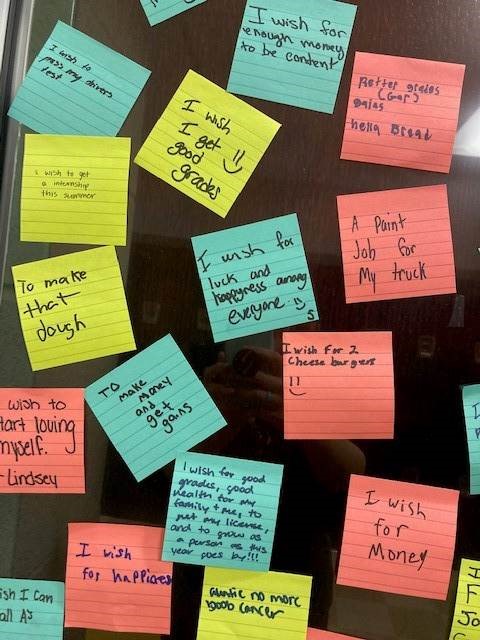 I wish for
enough money
to be content
I wish to
pass my drivers
test
Better grades
(Gar)
gains
hella Bread
I wish
I get
good
grades
I wish to get
a internship
this summer
A Paint
Job for
My truck
I wish for
luck and
happyness among
everyone
S
To make
that
dough
I wish For 2
Cheese burgers
TO
make
Money
and
get
gains
wish to
tart loving
myself.
-Lindsey
I wish for good
grades, good
health for my
family + me, to
get my license,
and to grow as
a person as this
year goes by!!!
I wish
for
Money
I wish
for happiness
no more
boob cancer
ish I Can
all A's
I
F
Jo